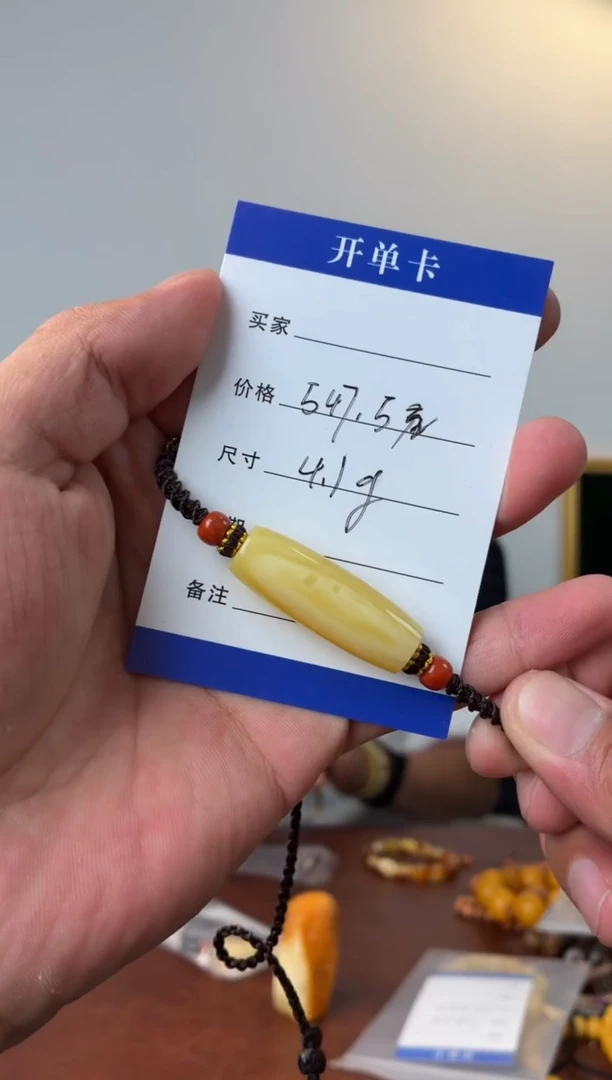 开单卡
买家
价格 547.5
尺寸 4.1g
期
备注